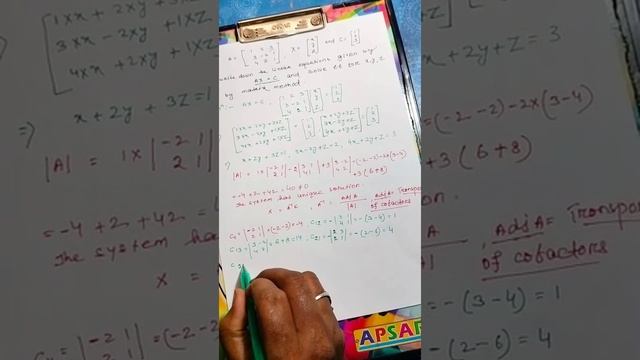 A = [1 2 3
3 -2 1
4 2 1], X = [x
y
z] and C = [1
2
3]
write down the linear equations given by
AX = C and solve it for x, y, z
by matrix method
AX = C, [1 2 3
3 -2 1
4 2 1] [x
y
z] = [1
2
3]
⇒ [1xx + 2xy + 3xz
3xx - 2xy + 1xz
4xx + 2xy + 1xz] = [1
2
3] [x+2y+3z
3x-2y+z
4x+2y+z] = [1
2
3]
⇒ x+2y+3z=1, 3x-2y+z=2, 4x+2y+z=3
|A| = 1x|-2 1
2 1| -2|3 1
4 1| +3|3 -2
4 2| = (-2-2)-2x(3-4)
+3(6+8)
= -4+2+42 = 40 ≠ 0
The system has unique solution.
X = A⁻¹C, A⁻¹ = AdjA/|A|, AdjA = Transpose
of cofactors
C₁₁ = |-2 1
2 1| = (-2-2) = -4, C₁₂ = -|3 1
4 1| = -(3-4) = 1
C₁₃ = |3 -2
4 2| = 6+8 = 14, C₂₁ = -|2 3
2 1| = -(2-6) = 4
C3
APSAR